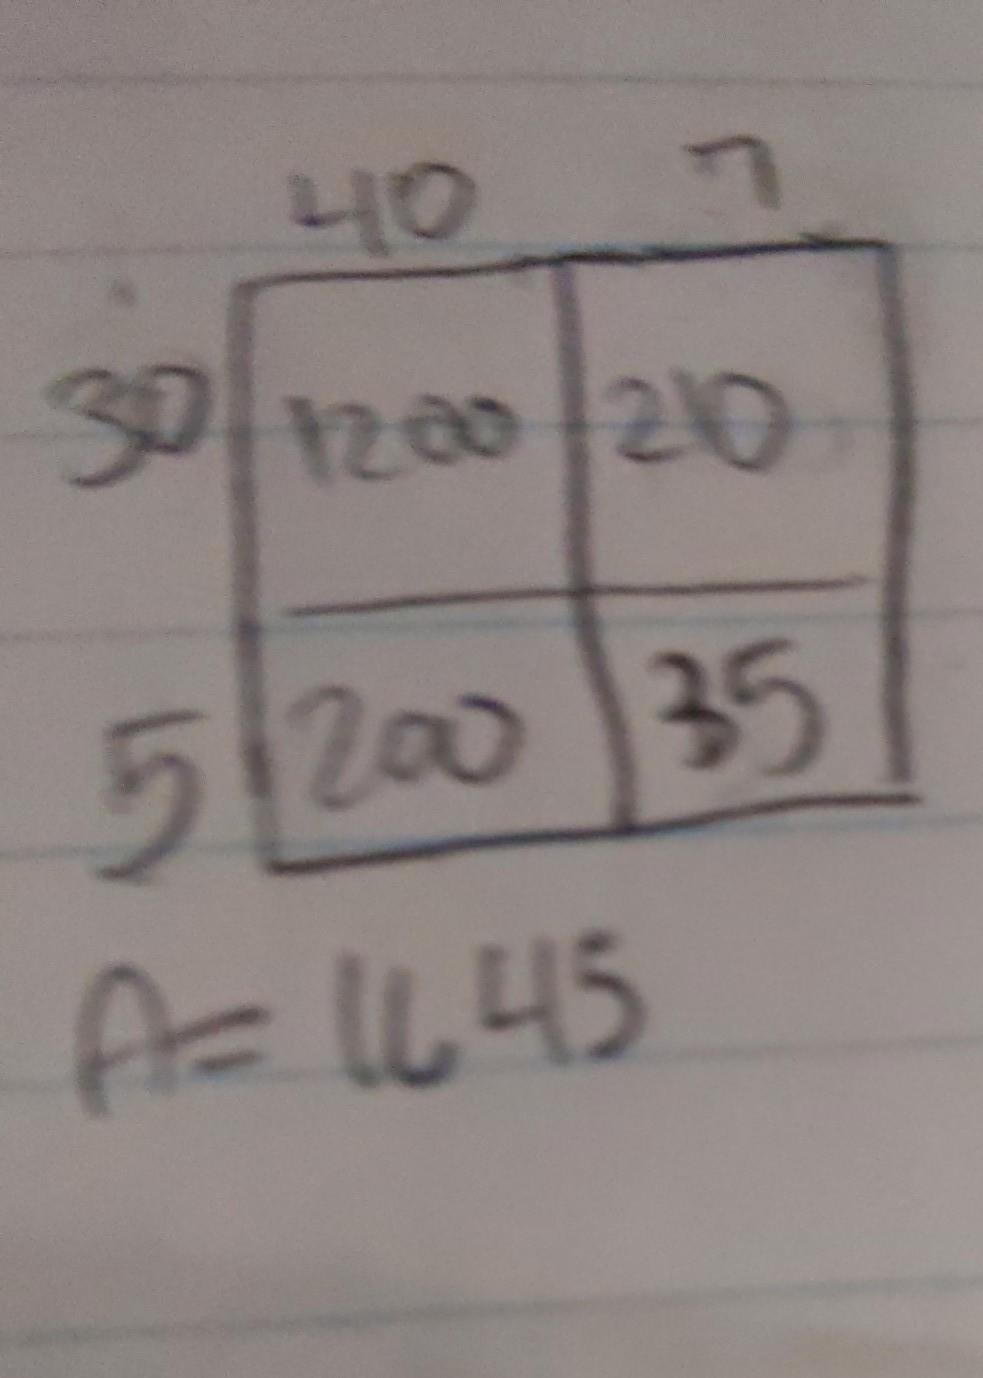 40 7
30 1200 210
5 200 35
A= 1645